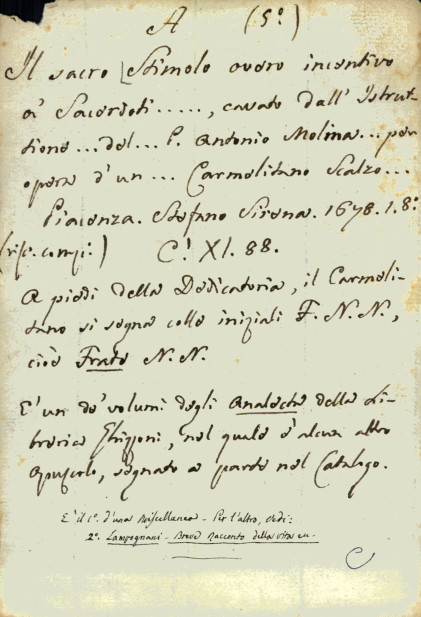 A (5º)
Il sacro Stimolo overo incentivo
a' Sacerdoti ....., cavato dall' Istrut-
tione ... del ... P. Antonio Molina ... per
opera d'un ... Carmelitano Scalzo ...
Piacenza. Stefano Sirena. 1678. 1. 8º
C! XI. 88.
A piedi della Dedicatoria, il Carmeli-
tano si segna colle iniziali F. N. N.,
cioè Frate N. N.
E' un de' volumi degli Analecta della Li-
breria Ghizzoni, nel quale è alcun altro
opuscolo, segnato a parte nel Catalogo.
E' il 1º. d'una Miscellanea - Per l'altro, vedi:
2º. Lampugnani - Breve Racconto della vita
C